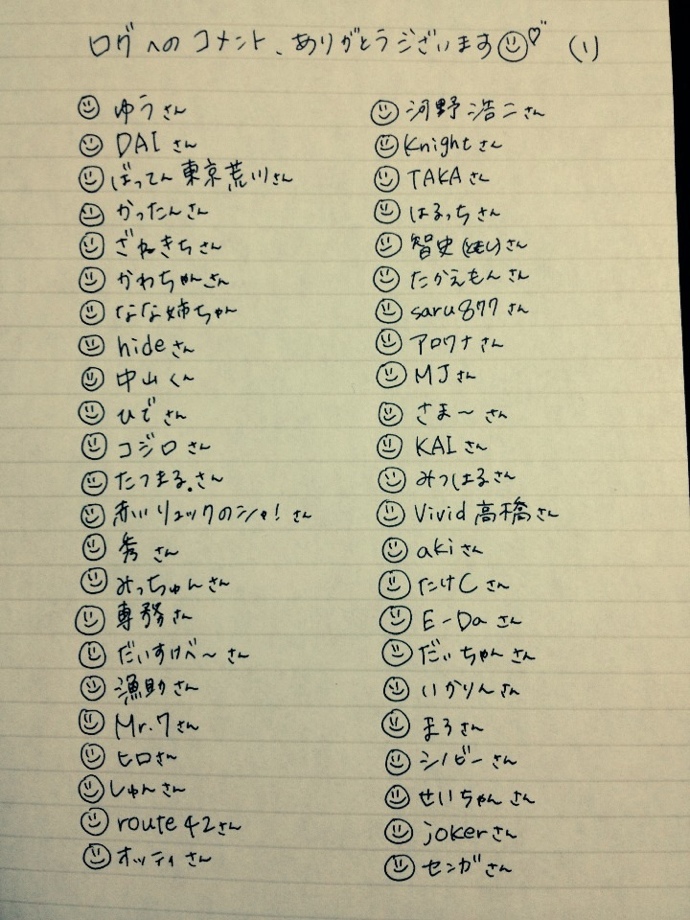 ログへのコメント、ありがとうございます☺♡ (1)
☺ ゆうさん
☺ DAIさん
☺ ばってん東京荒川さん
☺ かったんさん
☺ ざねきちさん
☺ かわちゃんさん
☺ なな姉ちゃん
☺ hideさん
☺ 中山くん
☺ ひでさん
☺ コジロさん
☺ たつまる。さん
☺ 赤いリュックのシャ!さん
☺ 秀さん
☺ みっちゅんさん
☺ 専務さん
☺ だいすけべ〜さん
☺ 漁助さん
☺ Mr.7さん
☺ ヒロさん
☺ しゅんさん
☺ route42さん
☺ オッティさん
☺ 河野浩二さん
☺ Knightさん
☺ TAKAさん
☺ はるっちさん
☺ 智史(さとし)さん
☺ たかえもんさん
☺ saru877さん
☺ アロワナさん
☺ MJさん
☺ さま〜さん
☺ KAIさん
☺ みつはるさん
☺ Vivid高橋さん
☺ akiさん
☺ たけCさん
☺ E-Daさん
☺ だぃちゃんさん
☺ いかりんさん
☺ まろさん
☺ シノビーさん
☺ せいちゃんさん
☺ jokerさん
☺ センガさん